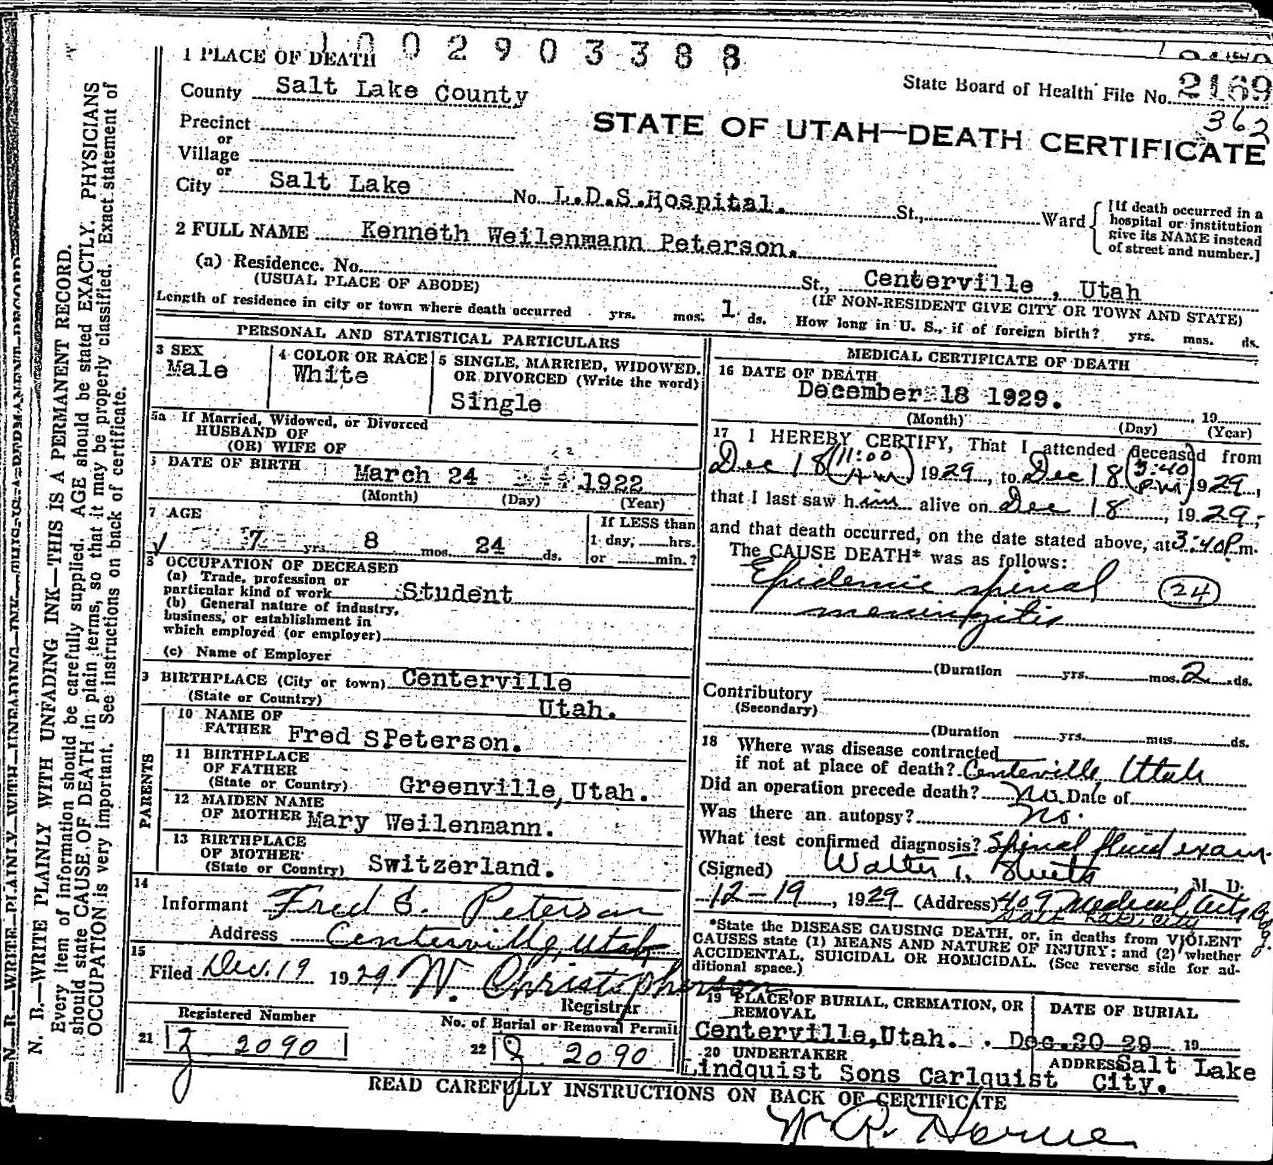 1002903388
1 PLACE OF DEATH
State Board of Health File No. 2169
362
County Salt Lake County
STATE OF UTAH—DEATH CERTIFICATE
Precinct
or
Village
or
City Salt Lake No. L.D.S. Hospital. St., Ward
[If death occurred in a
hospital or institution
give its NAME instead
of street and number.]
2 FULL NAME Kenneth Weilenmann Peterson.
(a) Residence. No. St., Centerville, Utah
(USUAL PLACE OF ABODE) (IF NON-RESIDENT GIVE CITY OR TOWN AND STATE)
Length of residence in city or town where death occurred yrs. mos. 1 ds. How long in U. S., if of foreign birth? yrs. mos. ds.
PERSONAL AND STATISTICAL PARTICULARS
3 SEX
Male
4 COLOR OR RACE
White
5 SINGLE, MARRIED, WIDOWED,
OR DIVORCED (Write the word)
Single
5a If Married, Widowed, or Divorced
HUSBAND OF
(OR) WIFE OF
DATE OF BIRTH March 24 1922
(Month) (Day) (Year)
7 AGE
7 yrs. 8 mos. 24 ds.
If LESS than
1 day, hrs.
or min.?
OCCUPATION OF DECEASED
(a) Trade, profession or
particular kind of work Student
(b) General nature of industry,
business, or establishment in
which employed (or employer)
(c) Name of Employer
9 BIRTHPLACE (City or town) Centerville
(State or Country) Utah.
PARENTS
10 NAME OF
FATHER Fred S Peterson.
11 BIRTHPLACE
OF FATHER
(State or Country) Greenville, Utah.
12 MAIDEN NAME
OF MOTHER Mary Weilenmann.
13 BIRTHPLACE
OF MOTHER
(State or Country) Switzerland.
14
Informant Fred S. Peterson
Address Centerville, Utah
15
Filed Dec. 19 1929 W. Christopherson
Registrar
Registered Number
21 2090
No. of Burial or Removal Permit
22 2090
MEDICAL CERTIFICATE OF DEATH
16 DATE OF DEATH
December 18 1929. 19
(Month) (Day) (Year)
17 I HEREBY CERTIFY, That I attended deceased from
Dec 18 (11:00 A.M.) 1929, to Dec 18 (3:40 P.M) 1929,
that I last saw him alive on Dec 18, 1929;
and that death occurred, on the date stated above, at 3:40 P.m.
The CAUSE DEATH* was as follows:
Epidemic spinal (24)
meningitis
(Duration yrs. mos. 2 ds.
Contributory
(Secondary)
(Duration yrs. mos. ds.
18 Where was disease contracted
if not at place of death? Centerville Utah
Did an operation precede death? No Date of
Was there an autopsy? No.
What test confirmed diagnosis? Spinal fluid exam
(Signed) Walter T. M. D.
12-19, 1929 (Address) 409 Medical Arts Bldg
Salt Lake City
*State the DISEASE CAUSING DEATH, or, in deaths from VIOLENT
CAUSES state (1) MEANS AND NATURE OF INJURY; and (2) whether
ACCIDENTAL, SUICIDAL OR HOMICIDAL. (See reverse side for ad-
ditional space.)
19 PLACE OF BURIAL, CREMATION, OR
REMOVAL
Centerville, Utah.
DATE OF BURIAL
Dec. 20 29 19
20 UNDERTAKER
Lindquist Sons Carlquist
ADDRESS Salt Lake
City.
READ CAREFULLY INSTRUCTIONS ON BACK OF CERTIFICATE
N. B.—WRITE PLAINLY WITH UNFADING INK—THIS IS A PERMANENT RECORD.
Every item of information should be carefully supplied. AGE should be stated EXACTLY. PHYSICIANS
should state CAUSE OF DEATH in plain terms, so that it may be properly classified. Exact statement of
OCCUPATION is very important. See instructions on back of certificate.